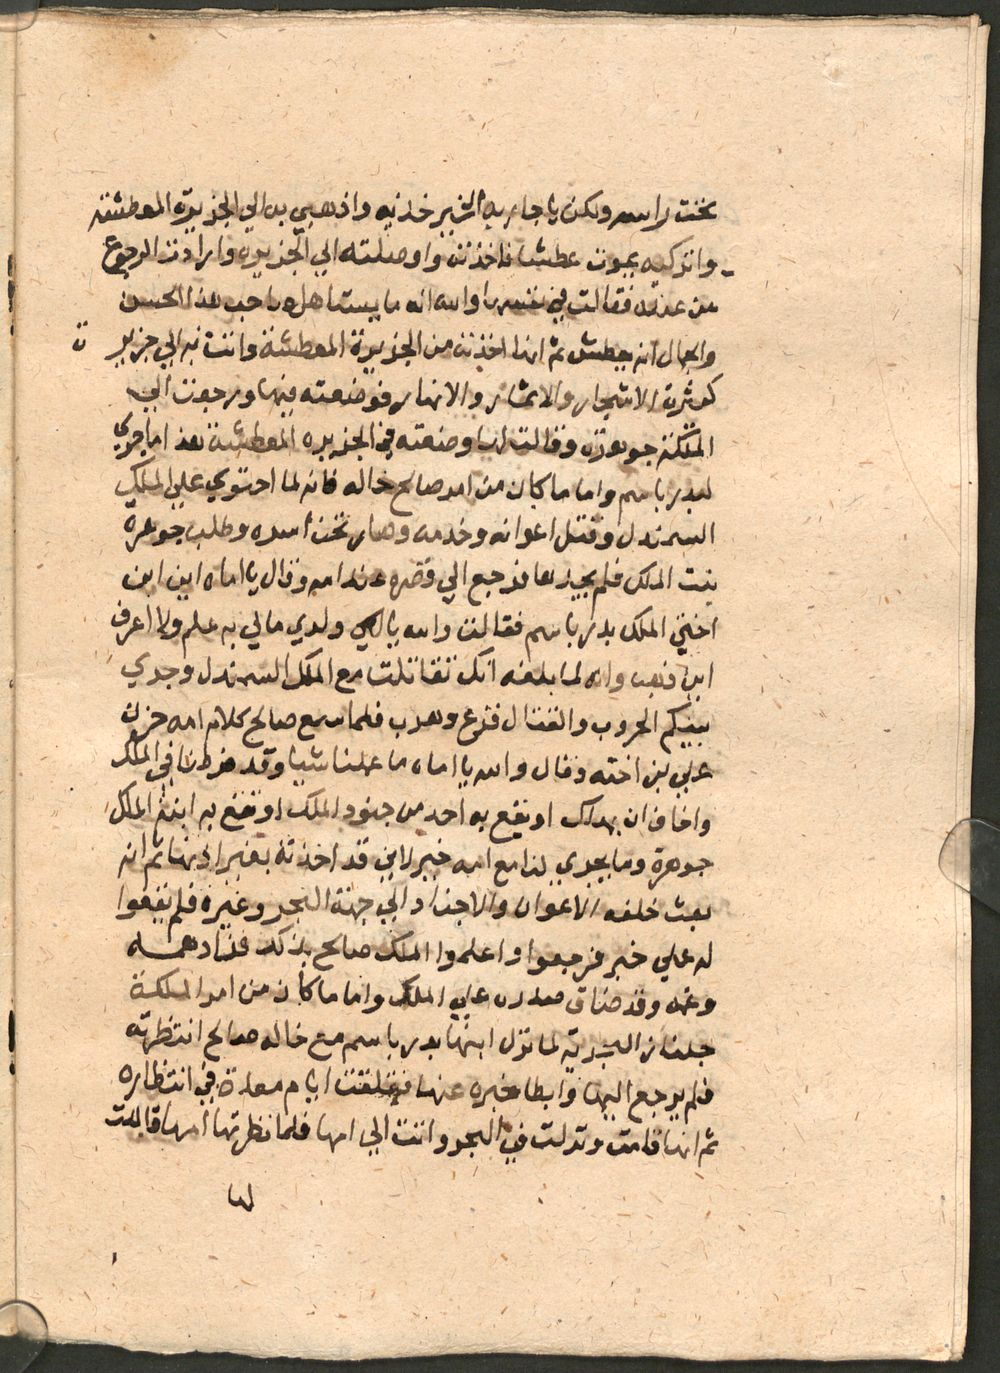 تحت راسه ولكن يا جاريه الخير خذيه واذهبي به الي الجزيره المعطشه
واتركيه يموت عطشا فاخذته واوصلته الي الجزيره وارادت الرجوع
من عنده فقالت في نفسها والله انه ما يستاهل صاحب هذا الحسن
والجمال انه يعطش ثم انها اخذته من الجزيرة المعطشة واتت به الي جزير ة
كثيرة الاشجار والاثمار والانهار فوضعته فيها ورجعت الي
الملكة جوهرة وقالت لها وضعته في الجزيره المعطشة هذا ما جري
لبدر باسم واما ما كان من امر صالح خاله فانه لما احتوي علي الملك
السمندل وقتل اعوانه وخدمه وصار تحت اسره وطلب جوهرة
بنت الملك فلم يجدها فرجع الي قصره عند امه وقال يا اماه اين ابن
اختي الملك بدر باسم فقالت والله يا ولدي مالي به علم ولا اعرف
اين ذهب وانه لما بلغه انك تقاتلت مع الملك السمندل وجري
بينكم الحروب والقتال فزع وهرب فلما سمع صالح كلام امه حزن
علي بن اخته وقال والله يا اماه ما عملنا شيا وقد فرطنا في الملك
واخاف ان يهلك او يقع به احد من جنود الملك او تقع به ابنة الملك
جوهرة وما يجري لنا مع امه خير لاني قد اخذته بغير اذنها ثم انه
بعث خلفه الاعوان والاجناد الي جهة البحر وغيره فلم يقعوا
له علي خبر فرجعوا واعلموا الملك صالح بذلك فزاد همه
وغمه وقد ضاق صدره علي الملك واما ما كان من امر الملكة
جلناز البحرية لما نزل ابنها بدر باسم مع خاله صالح انتظرته
فلم يرجع اليها وابطا خبره عنها فقعدت ايام معدة في انتظاره
ثم انها قامت ونزلت في البحر واتت الي امها فلما نظرتها امها قامت
لها